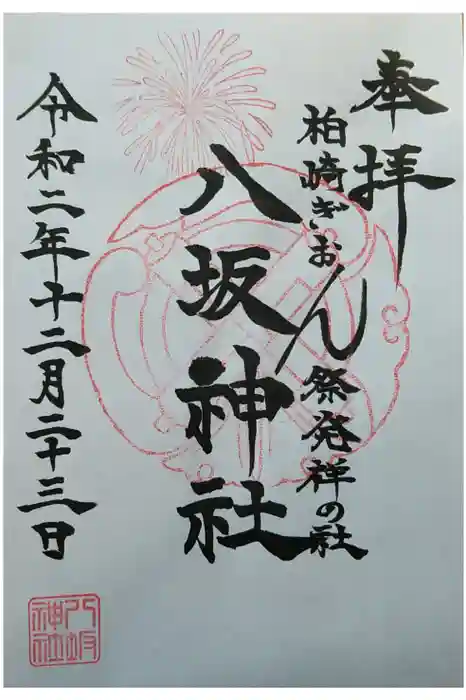 奉拝
柏崎ぎおん祭発祥の社
八坂神社
令和二年十二月二十三日
八坂
神社